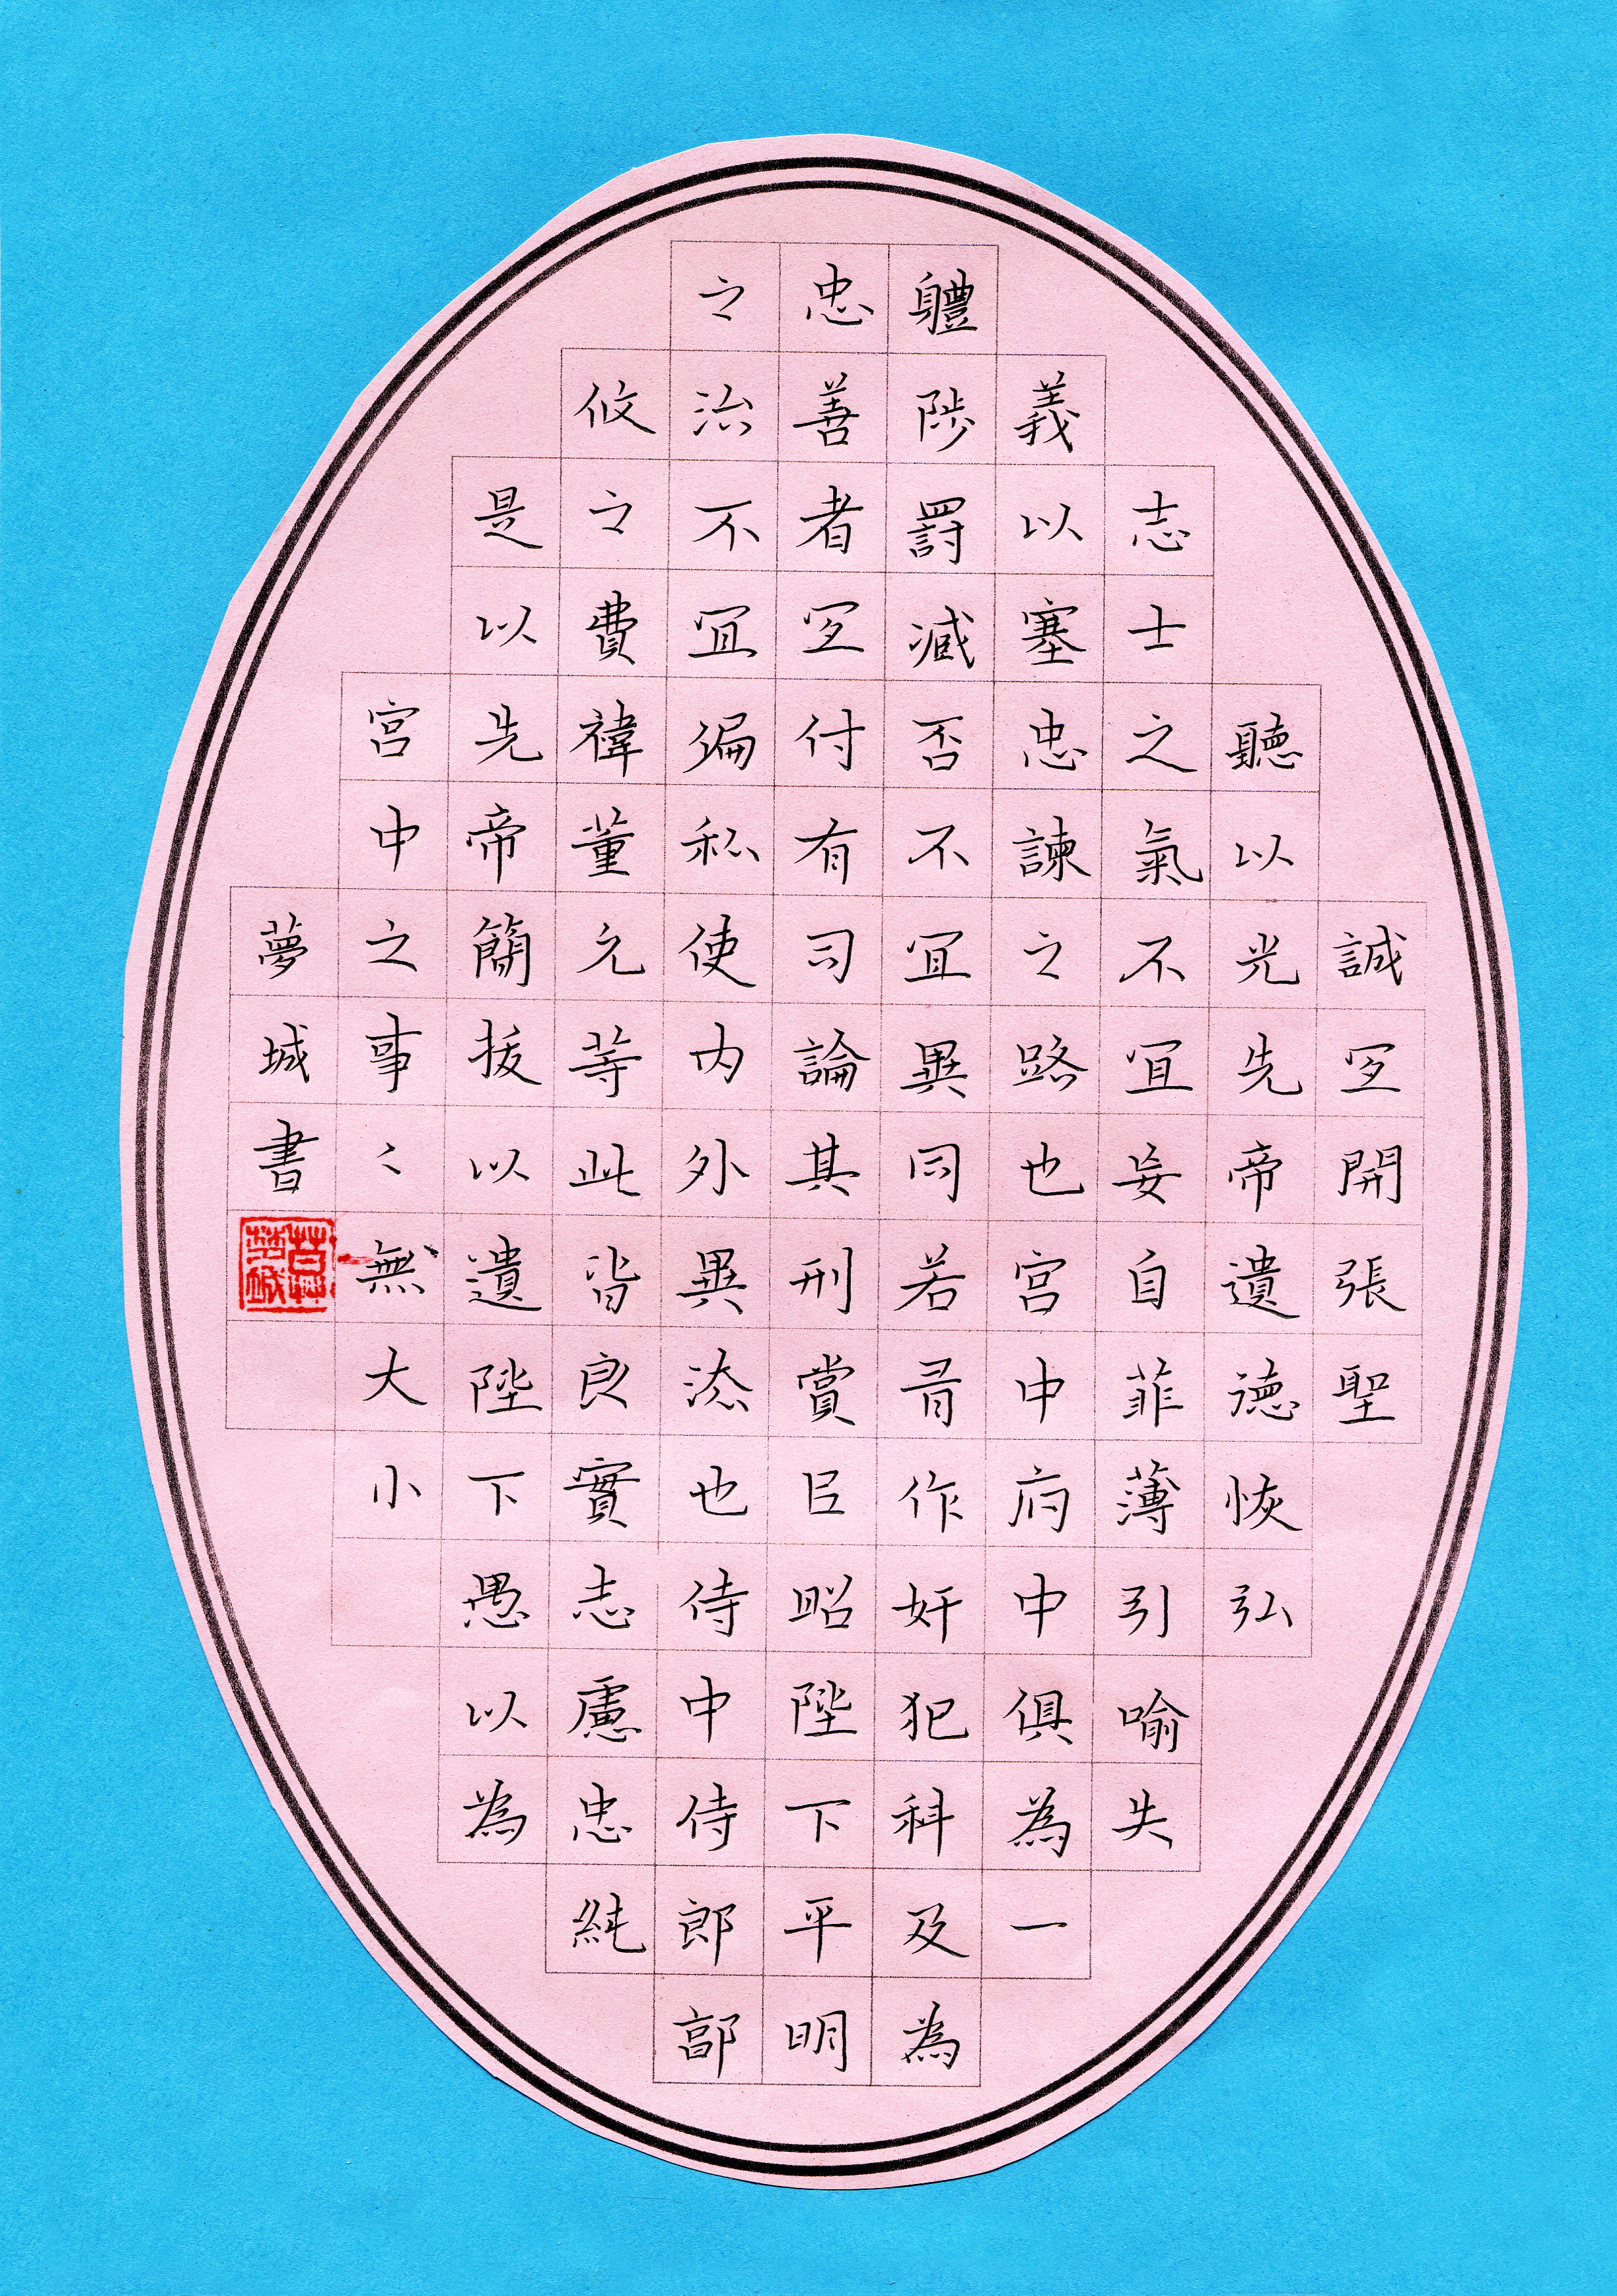 誠冝開張聖
聽以光先帝遺德恢弘
志士之氣不冝妄自菲薄引喻失
義以塞忠諫之路也宮中府中俱為一
軆陟罰臧否不冝異同若有作奸犯科及為
忠善者冝付有司論其刑賞臣昭陛下平明
之治不冝偏私使內外異法也侍中侍郎郭
攸之費禕董允等此皆良實志慮忠純
是以先帝簡拔以遺陛下愚以為
宮中之事〻無大小
夢城書